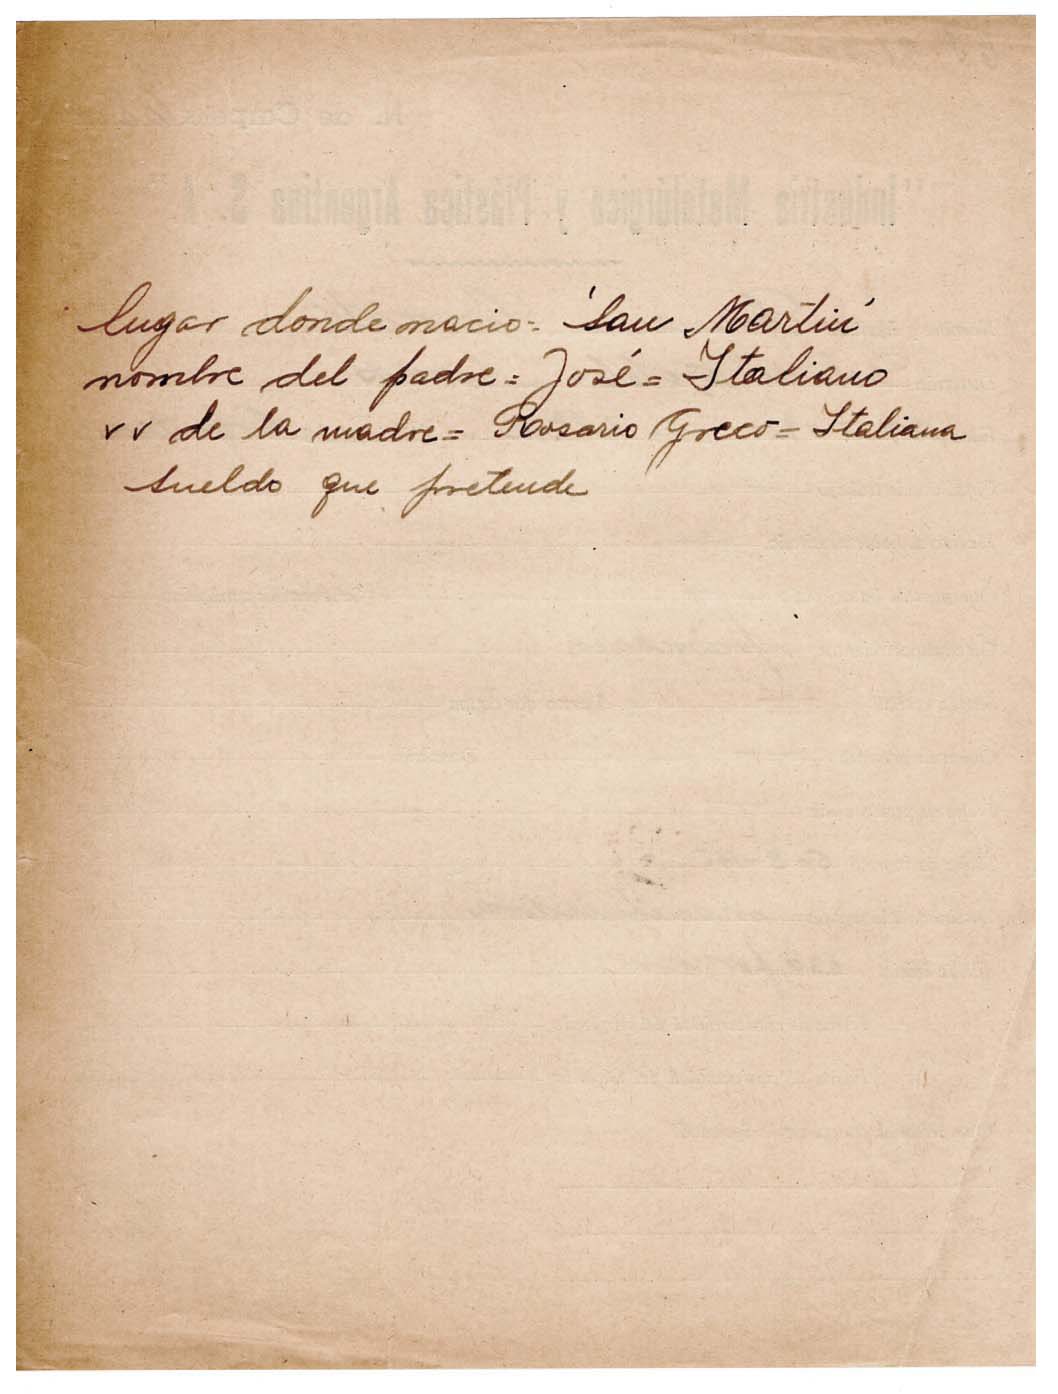 lugar donde nacio = San Martin
nombre del padre = José = Italiano
v v de la madre = Rosario Greco = Italiana
sueldo que pretende